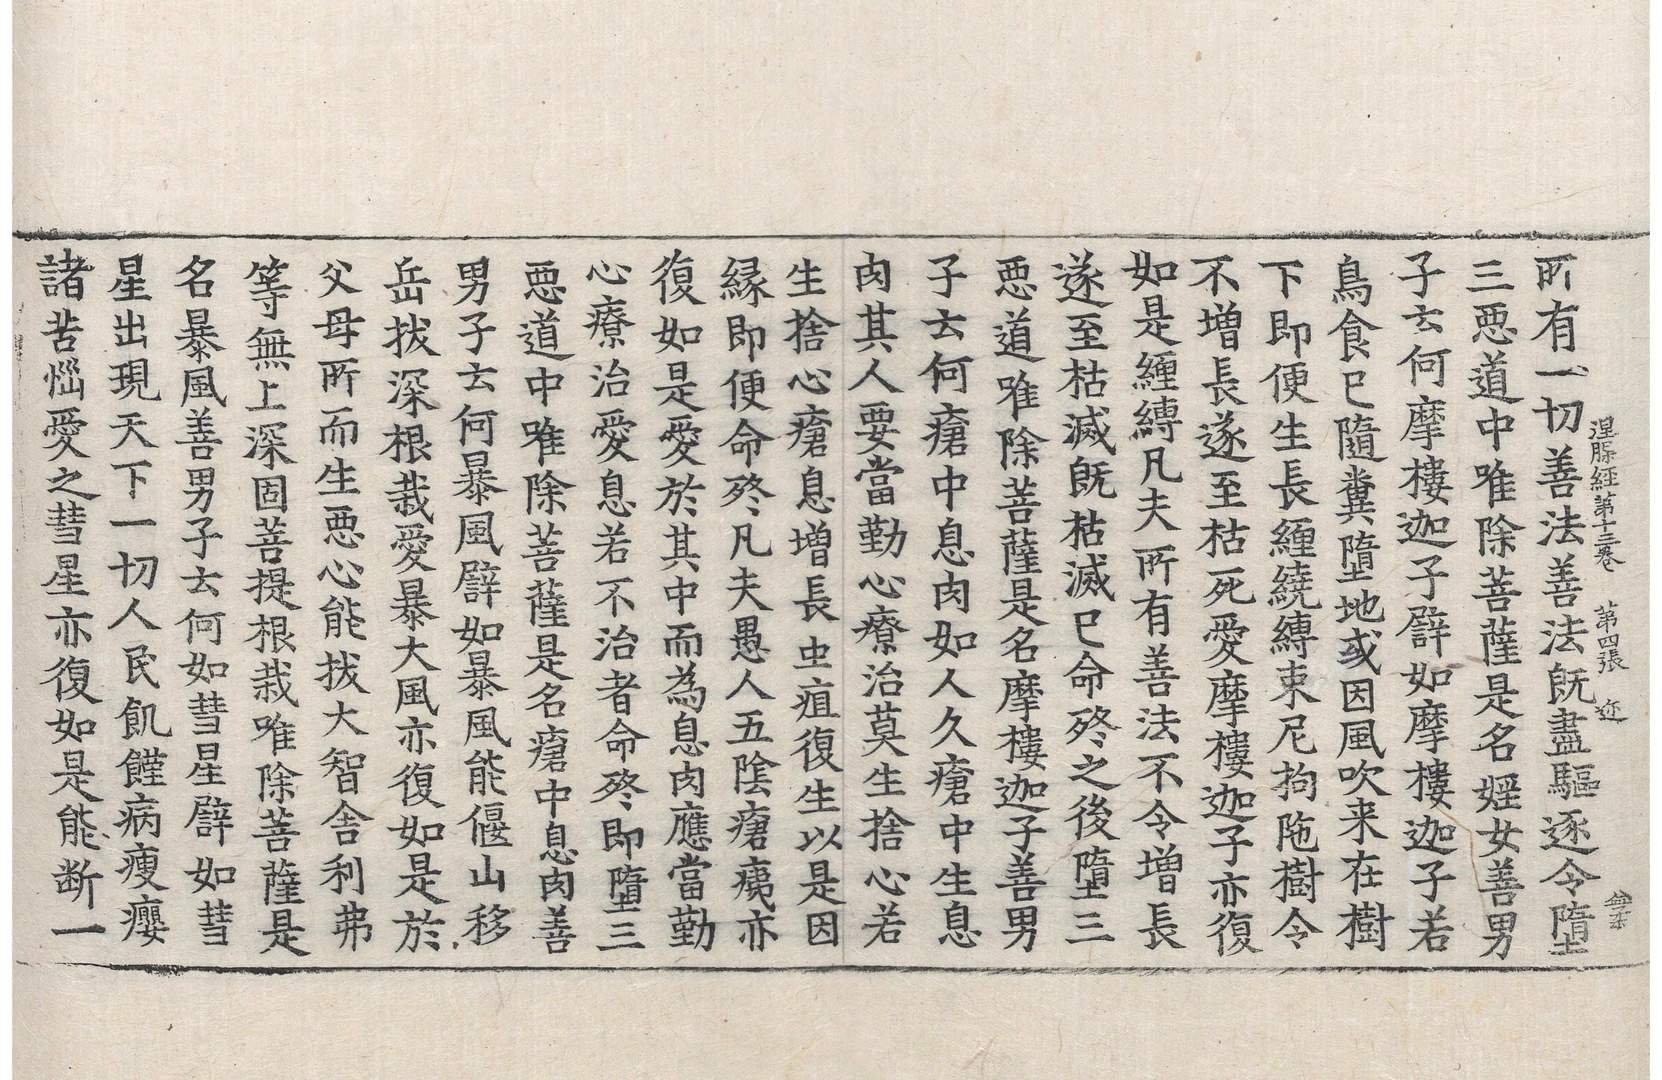 涅槃經第十三卷 第四張 迩
所有一切善法善法既盡驅逐令墮
三惡道中唯除菩薩是名婬女善男
子云何摩樓迦子譬如摩樓迦子若
鳥食已隨糞墮地或因風吹来在樹
下即便生長纏繞縛束尼拘陁樹令
不增長遂至枯死愛摩樓迦子亦復
如是纏縛凡夫所有善法不令增長
遂至枯滅既枯滅已命終之後墮三
惡道唯除菩薩是名摩樓迦子善男
子云何瘡中息肉如人久瘡中生息
肉其人要當勤心療治莫生捨心若
生捨心瘡息增長虫疽復生以是因
緣即便命終凡夫愚人五陰瘡痍亦
復如是愛於其中而為息肉應當勤
心療治愛息若不治者命終即墮三
惡道中唯除菩薩是名瘡中息肉善
男子云何暴風譬如暴風能偃山移
岳拔深根栽愛暴大風亦復如是於
父母所而生惡心能拔大智舍利弗
等無上深固菩提根栽唯除菩薩是
名暴風善男子云何如彗星譬如彗
星出現天下一切人民飢饉病瘦癭
諸苦惱愛之彗星亦復如是能断一